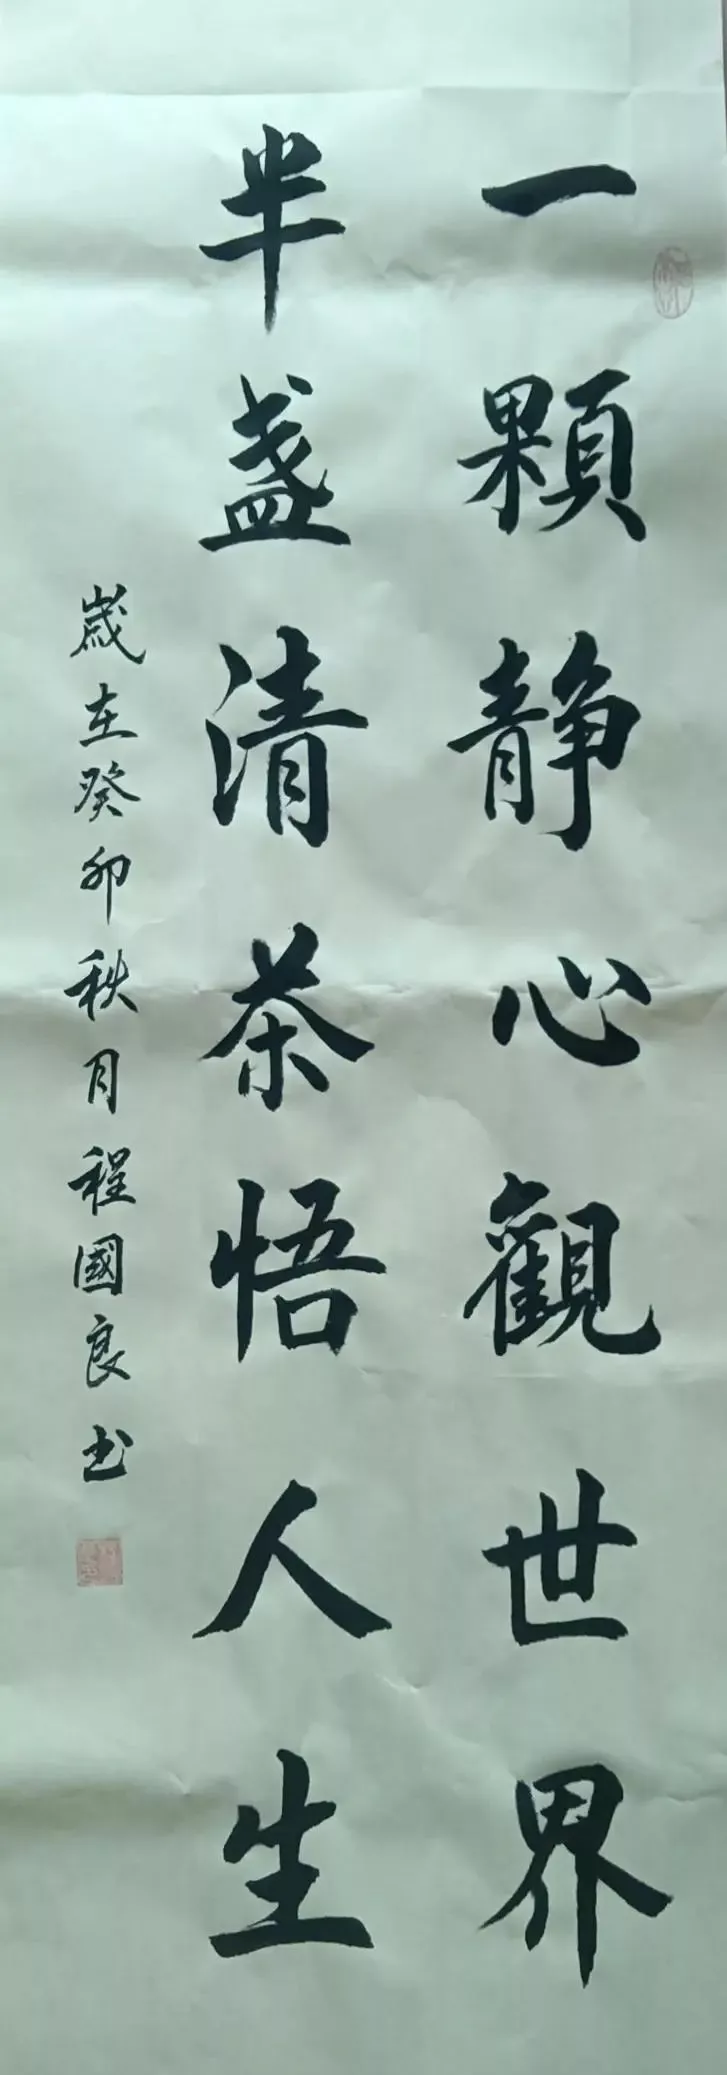 一顆静心觀世界
半盏清茶悟人生
歲在癸卯秋月程國良书